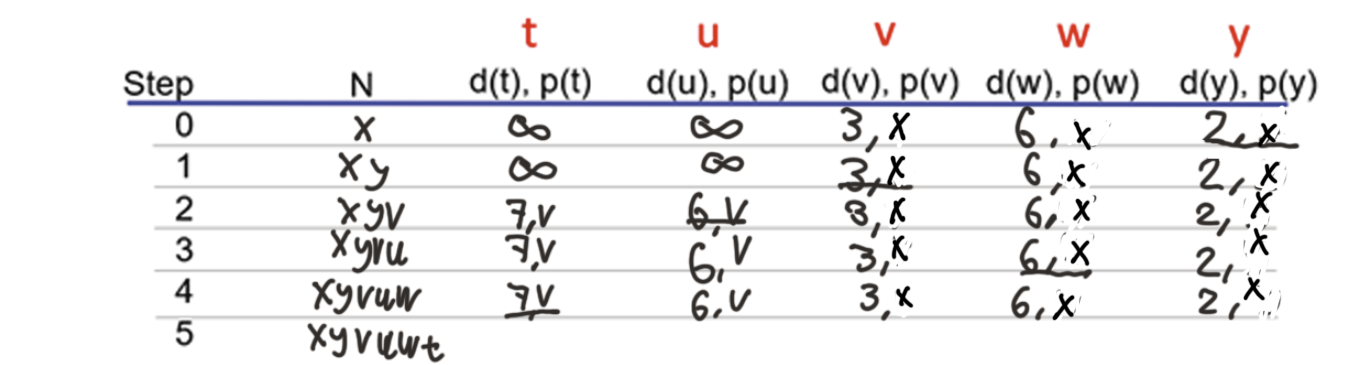 t u v w y
Step N d(t), p(t) d(u), p(u) d(v), p(v) d(w), p(w) d(y), p(y)
0 x ∞ ∞ 3,x 6,x 2,x
1 xy ∞ ∞ 3,x 6,x 2,x
2 xyv 7,v 6,v 3,x 6,x 2,x
3 xyvu 7,v 6,v 3,x 6,x 2,x
4 xyvuw 7,v 6,v 3,x 6,x 2,x
5 xyvuwt